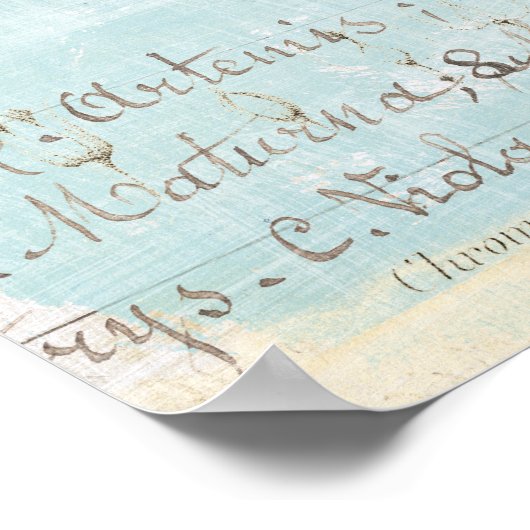 C. Artemis
Maturna, &
rys. C. Niob
Chrom